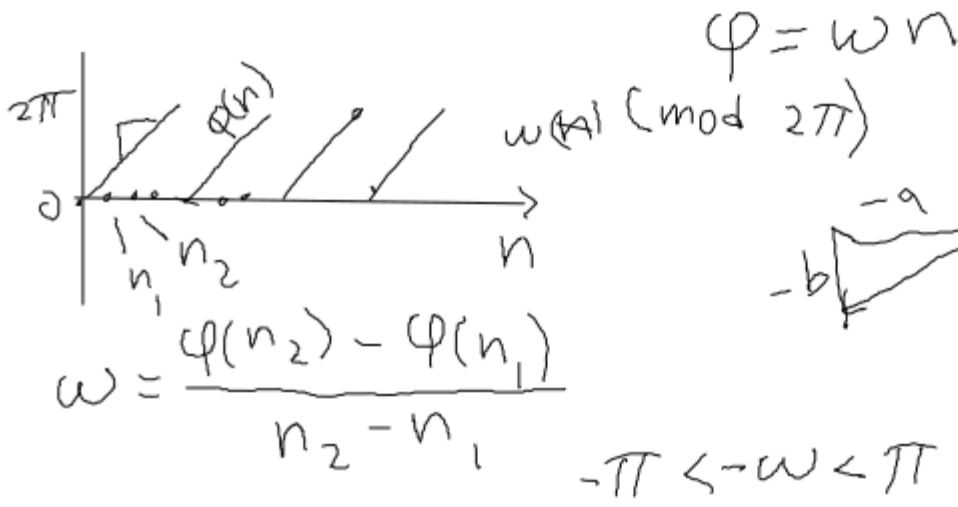 φ = ωn
2π
φ(n)
(mod 2π)
0
n₁
n₂
n
-a
-b
ω = (φ(n₂) - φ(n₁)) / (n₂ - n₁)
-π < -ω < π